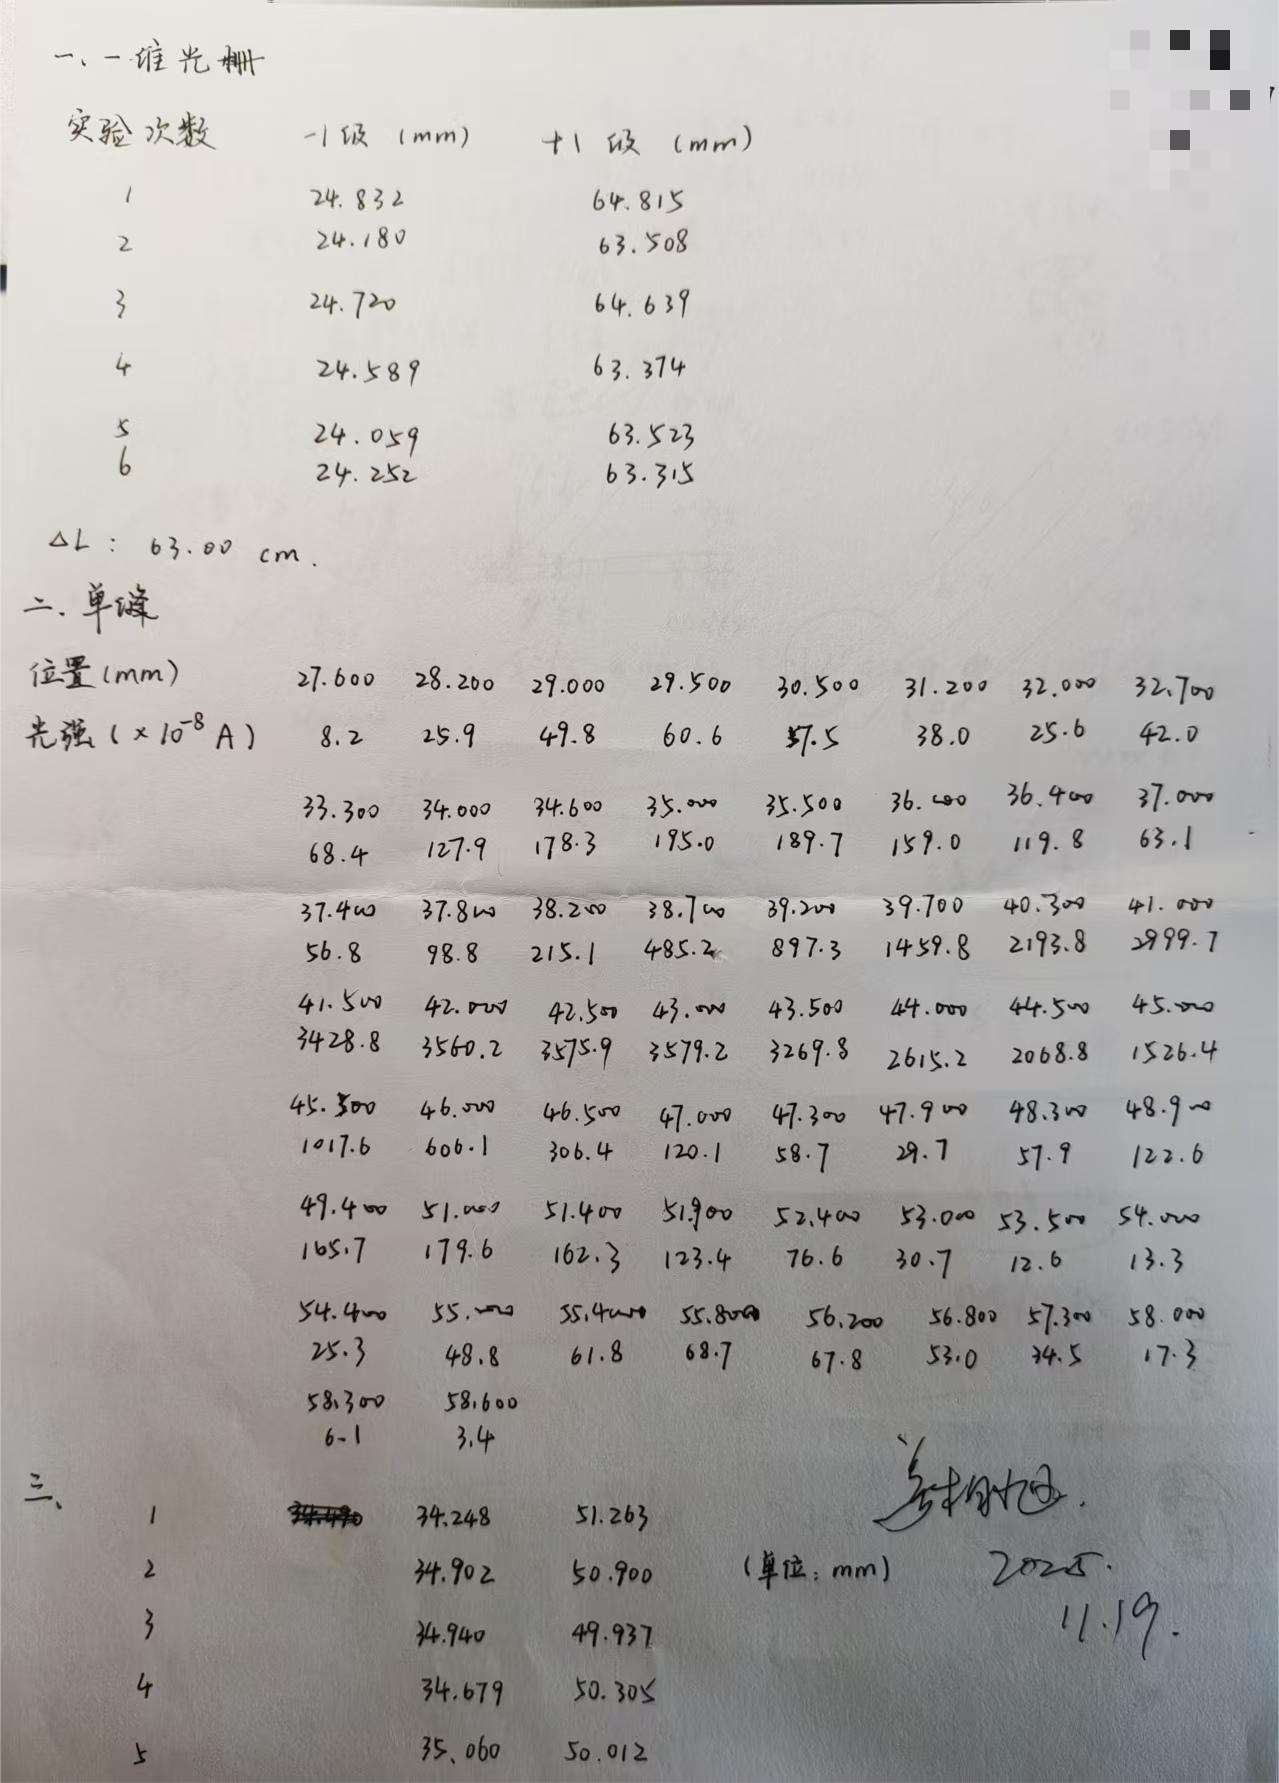 一、一维光栅
实验次数 -1级 (mm) +1级 (mm)
1 24.832 64.815
2 24.180 63.508
3 24.720 64.639
4 24.589 63.374
5 24.059 63.523
6 24.252 63.315
ΔL: 63.00 cm.
二、单缝
位置(mm) 27.600 28.200 29.000 29.500 30.500 31.200 32.000 32.700
光强(×10⁻⁸A) 8.2 25.9 49.8 60.6 57.5 38.0 25.6 42.0
33.300 34.000 34.600 35.000 35.500 36.000 36.400 37.000
68.4 127.9 178.3 195.0 189.7 159.0 119.8 63.1
37.400 37.800 38.200 38.700 39.200 39.700 40.300 41.000
56.8 98.8 215.1 485.2 897.3 1459.8 2193.8 2999.7
41.500 42.000 42.500 43.000 43.500 44.000 44.500 45.000
3428.8 3560.2 3575.9 3579.2 3269.8 2615.2 2068.8 1526.4
45.500 46.000 46.500 47.000 47.300 47.900 48.300 48.900
1017.6 606.1 306.4 120.1 58.7 29.7 57.9 122.6
49.400 51.000 51.400 51.900 52.400 53.000 53.500 54.000
165.7 179.6 162.3 123.4 76.6 30.7 12.6 13.3
54.400 55.000 55.400 55.800 56.200 56.800 57.300 58.000
25.3 48.8 61.8 68.7 67.8 53.0 34.5 17.3
58.300 58.600
6.1 3.4
三、
1 34.248 51.263
2 34.902 50.900 (单位: mm)
3 34.940 49.937
4 34.679 50.305
5 35.060 50.012
2025.
11.19.